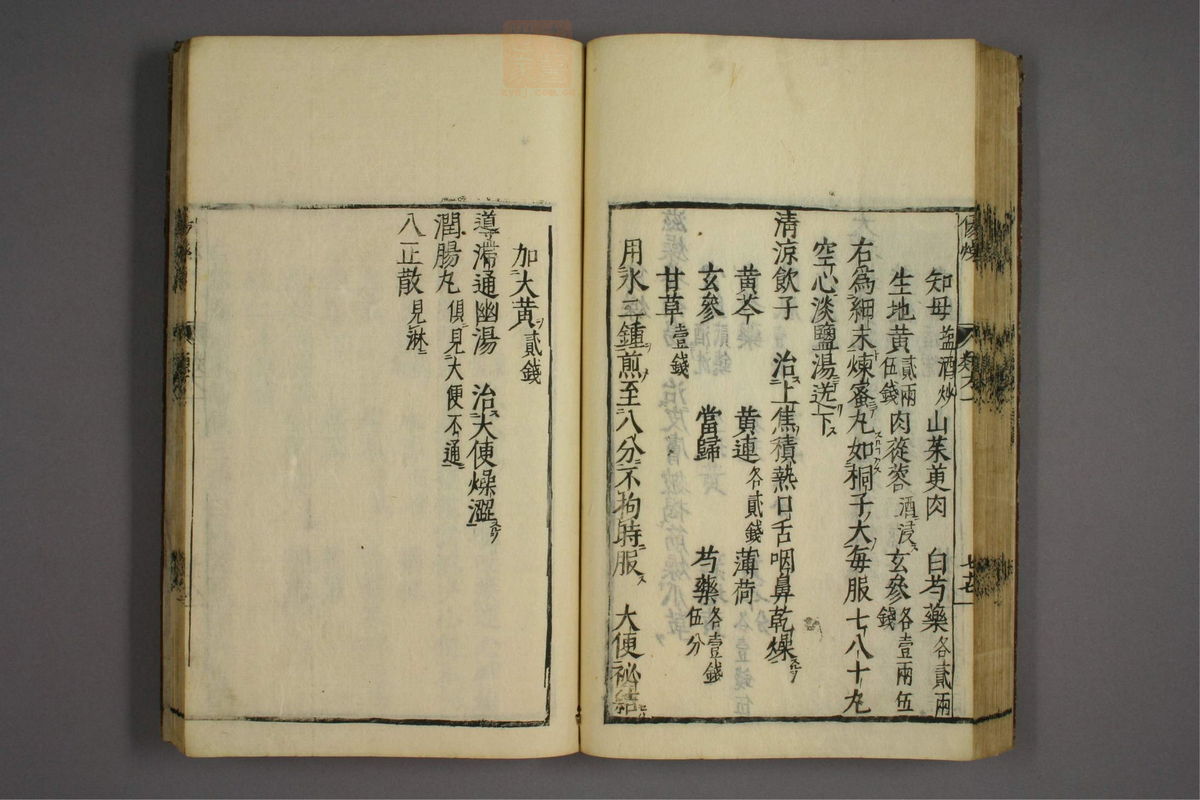 知母鹽酒炒 山茱萸肉 白芍藥各貳兩
生地黃貳兩伍錢 肉蓯蓉酒浸ス 玄參各壹兩伍錢
右爲細末煉蜜丸如桐子大每服七八十丸
空心淡鹽湯送下
清涼飲子 治上焦積熱口舌咽鼻乾燥
黃芩 黃連各貳錢 薄荷
玄參 當歸 芍藥各壹錢伍分
甘草壹錢
用水二鍾煎至八分不拘時服 大便祕結
加大黃貳錢
導滯通幽湯 治大便燥澀
潤腸丸俱見大便不通
八正散見淋